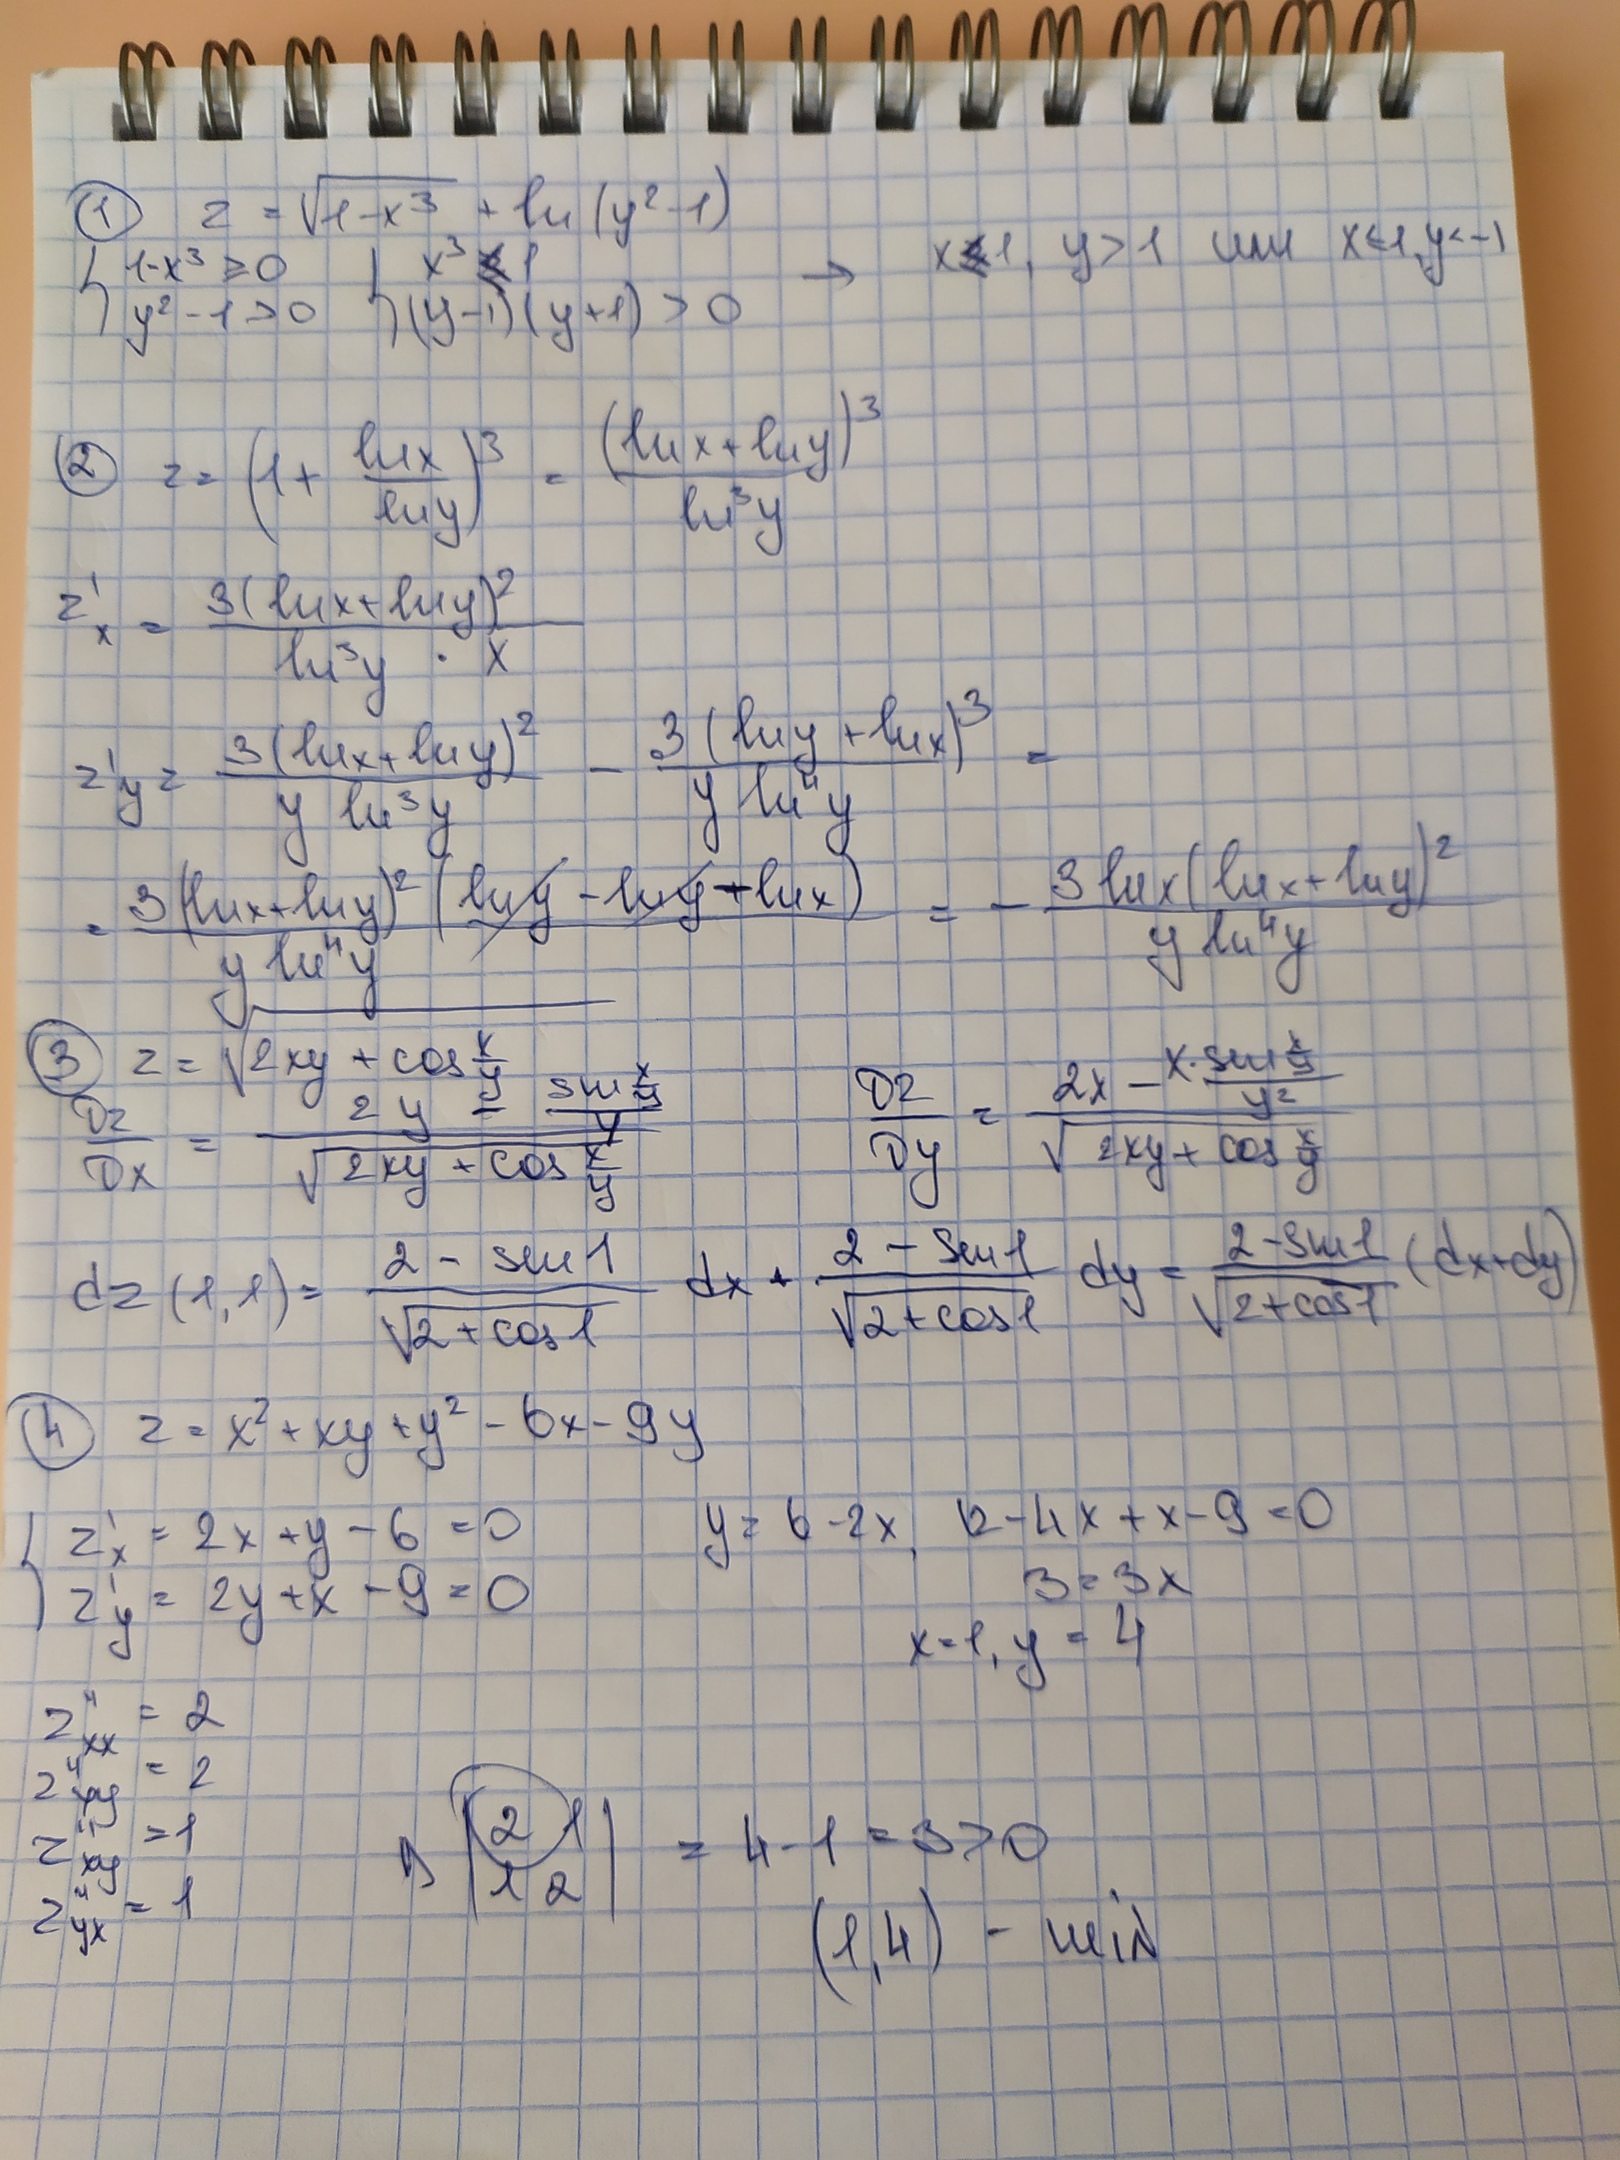 ① z = √(1-x³) + ln(y²-1)
{ 1-x³ ≥ 0 { x³ ≤ 1 → x ≤ 1, y > 1 или x ≤ 1, y < -1
y² - 1 > 0 (y-1)(y+1) > 0
② z = (1 + lnx/lny)³ = (lnx+lny)³/ln³y
z'x = 3(lnx+lny)²/(ln³y · x)
z'y = 3(lnx+lny)²/(y ln³y) - 3(lny+lnx)³/(y ln⁴y) =
= 3(lnx+lny)²(lny - lny - lnx)/(y ln⁴y) = - 3lnx(lnx+lny)²/(y ln⁴y)
③ z = √(2xy + cos x/y)
Dz/Dx = (2y - (sin x/y)/y)/√(2xy + cos x/y) Dz/Dy = (2x - x·(sin x/y)/y²)/√(2xy + cos x/y)
dz(1,1) = (2 - sin1)/√(2+cos1) dx + (2 - sin1)/√(2+cos1) dy = (2-sin1)/√(2+cos1) (dx+dy)
④ z = x² + xy + y² - 6x - 9y
{ z'x = 2x + y - 6 = 0 y = 6-2x, 12-4x+x-9=0
z'y = 2y + x - 9 = 0 3 = 3x
x=1, y = 4
z''xx = 2
z''yy = 2
z''xy = 1
z''yx = 1
|2 1|
|1 2| = 4-1 = 3 > 0
(1,4) - min